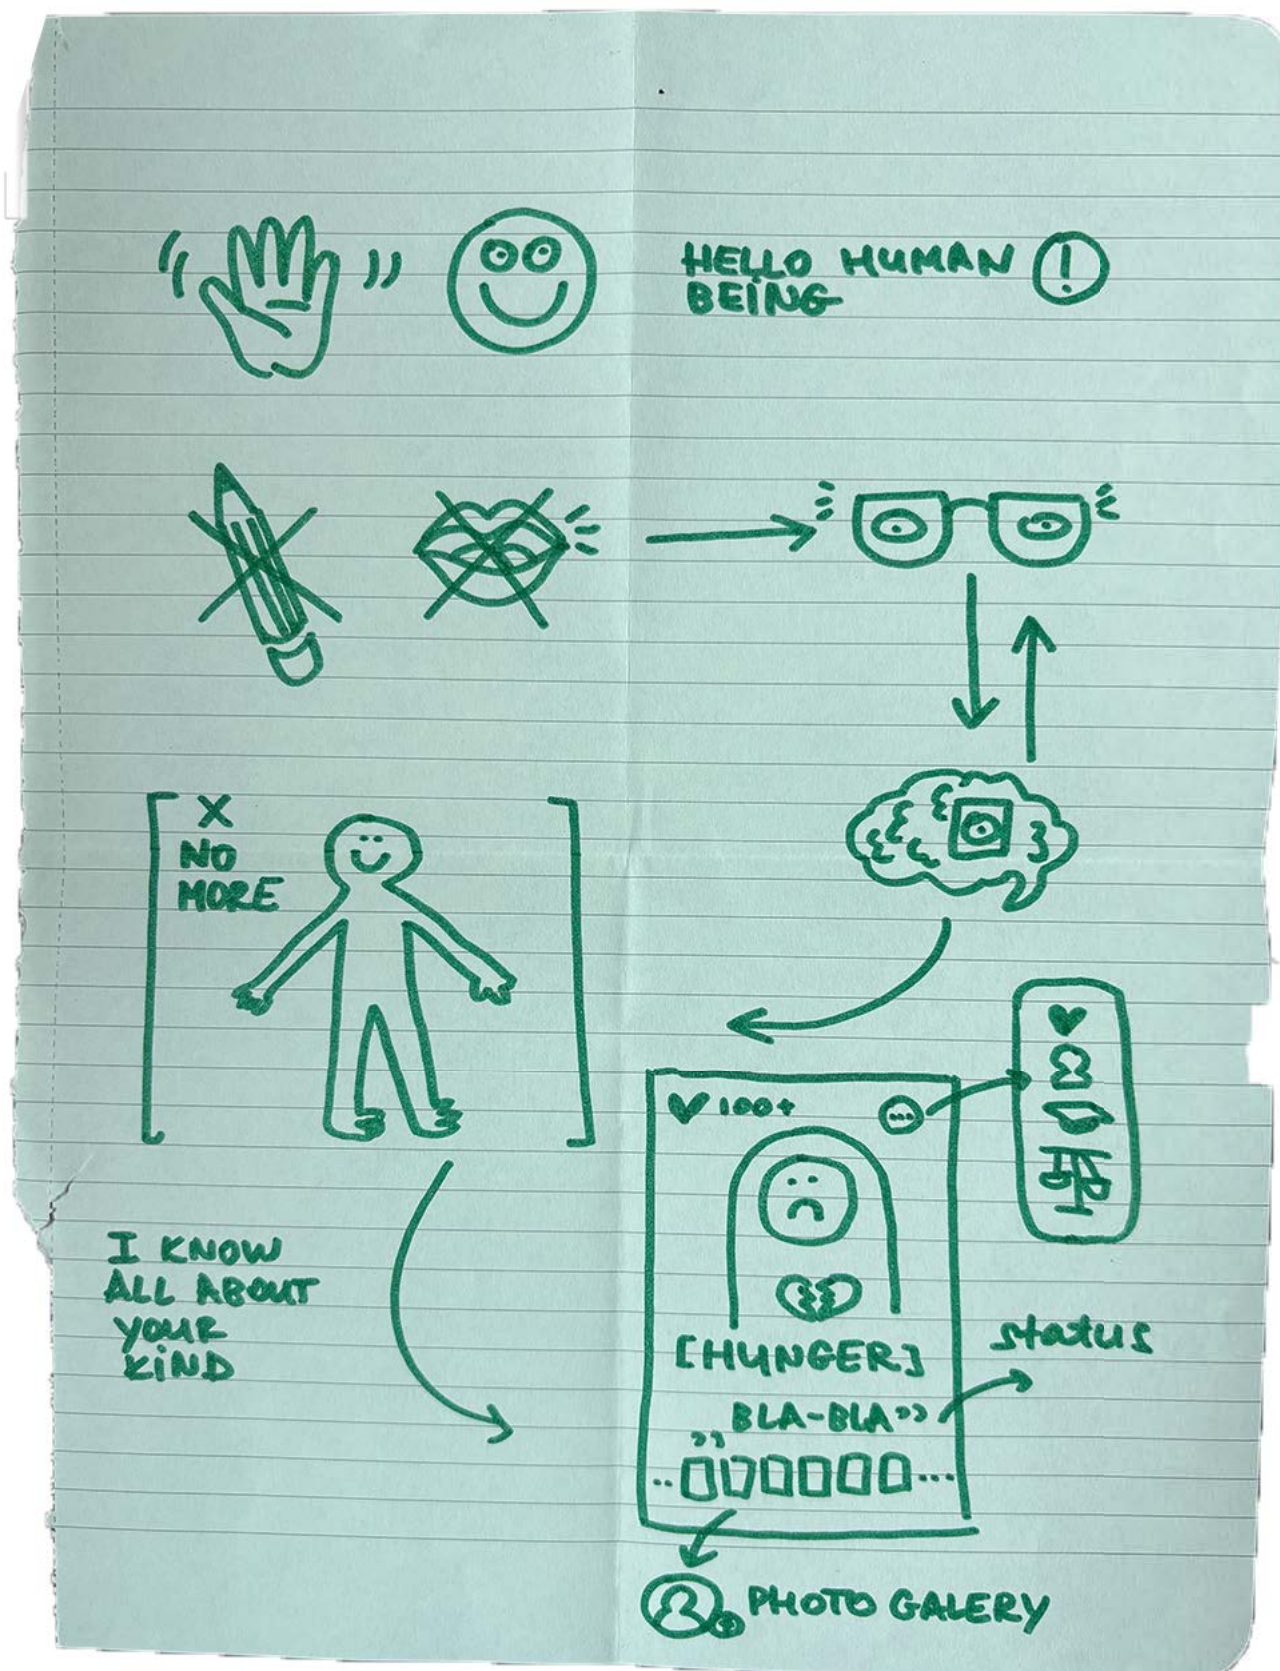 HELLO HUMAN
BEING
!
X
NO
MORE
I KNOW
ALL ABOUT
YOUR
KIND
100+
...
[HUNGER]
BLA-BLA"
status
PHOTO GALERY